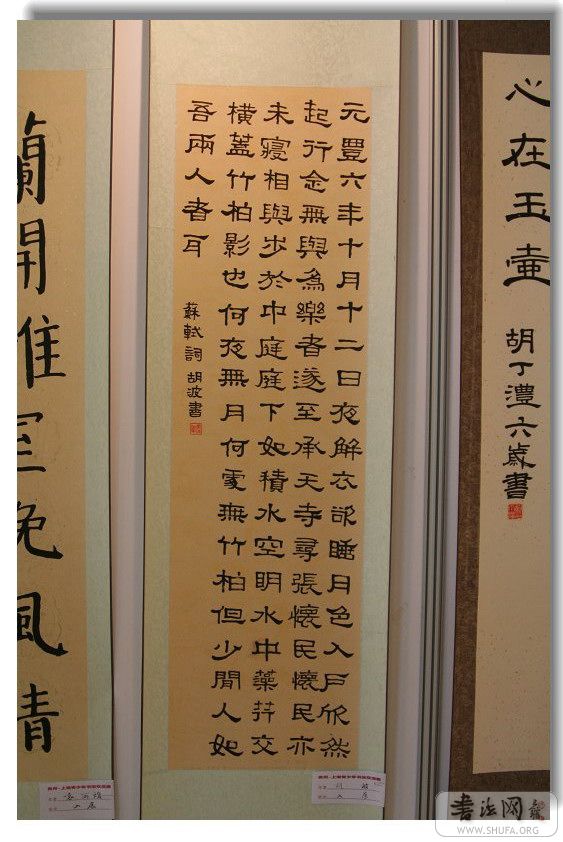 心在玉壺
胡丁澧六歲書
元豐六年十月十二日夜解衣欲睡月色入戶欣然
起行念無與為樂者遂至承天寺尋張懷民懷民亦
未寢相與步於中庭庭下如積水空明水中藻荇交
橫蓋竹柏影也何夜無月何處無竹柏但少閒人如
吾兩人者耳
蘇軾詞 胡波書
蘭開室晚風清
入展
入展
书法网
WWW.SHUFA.ORG